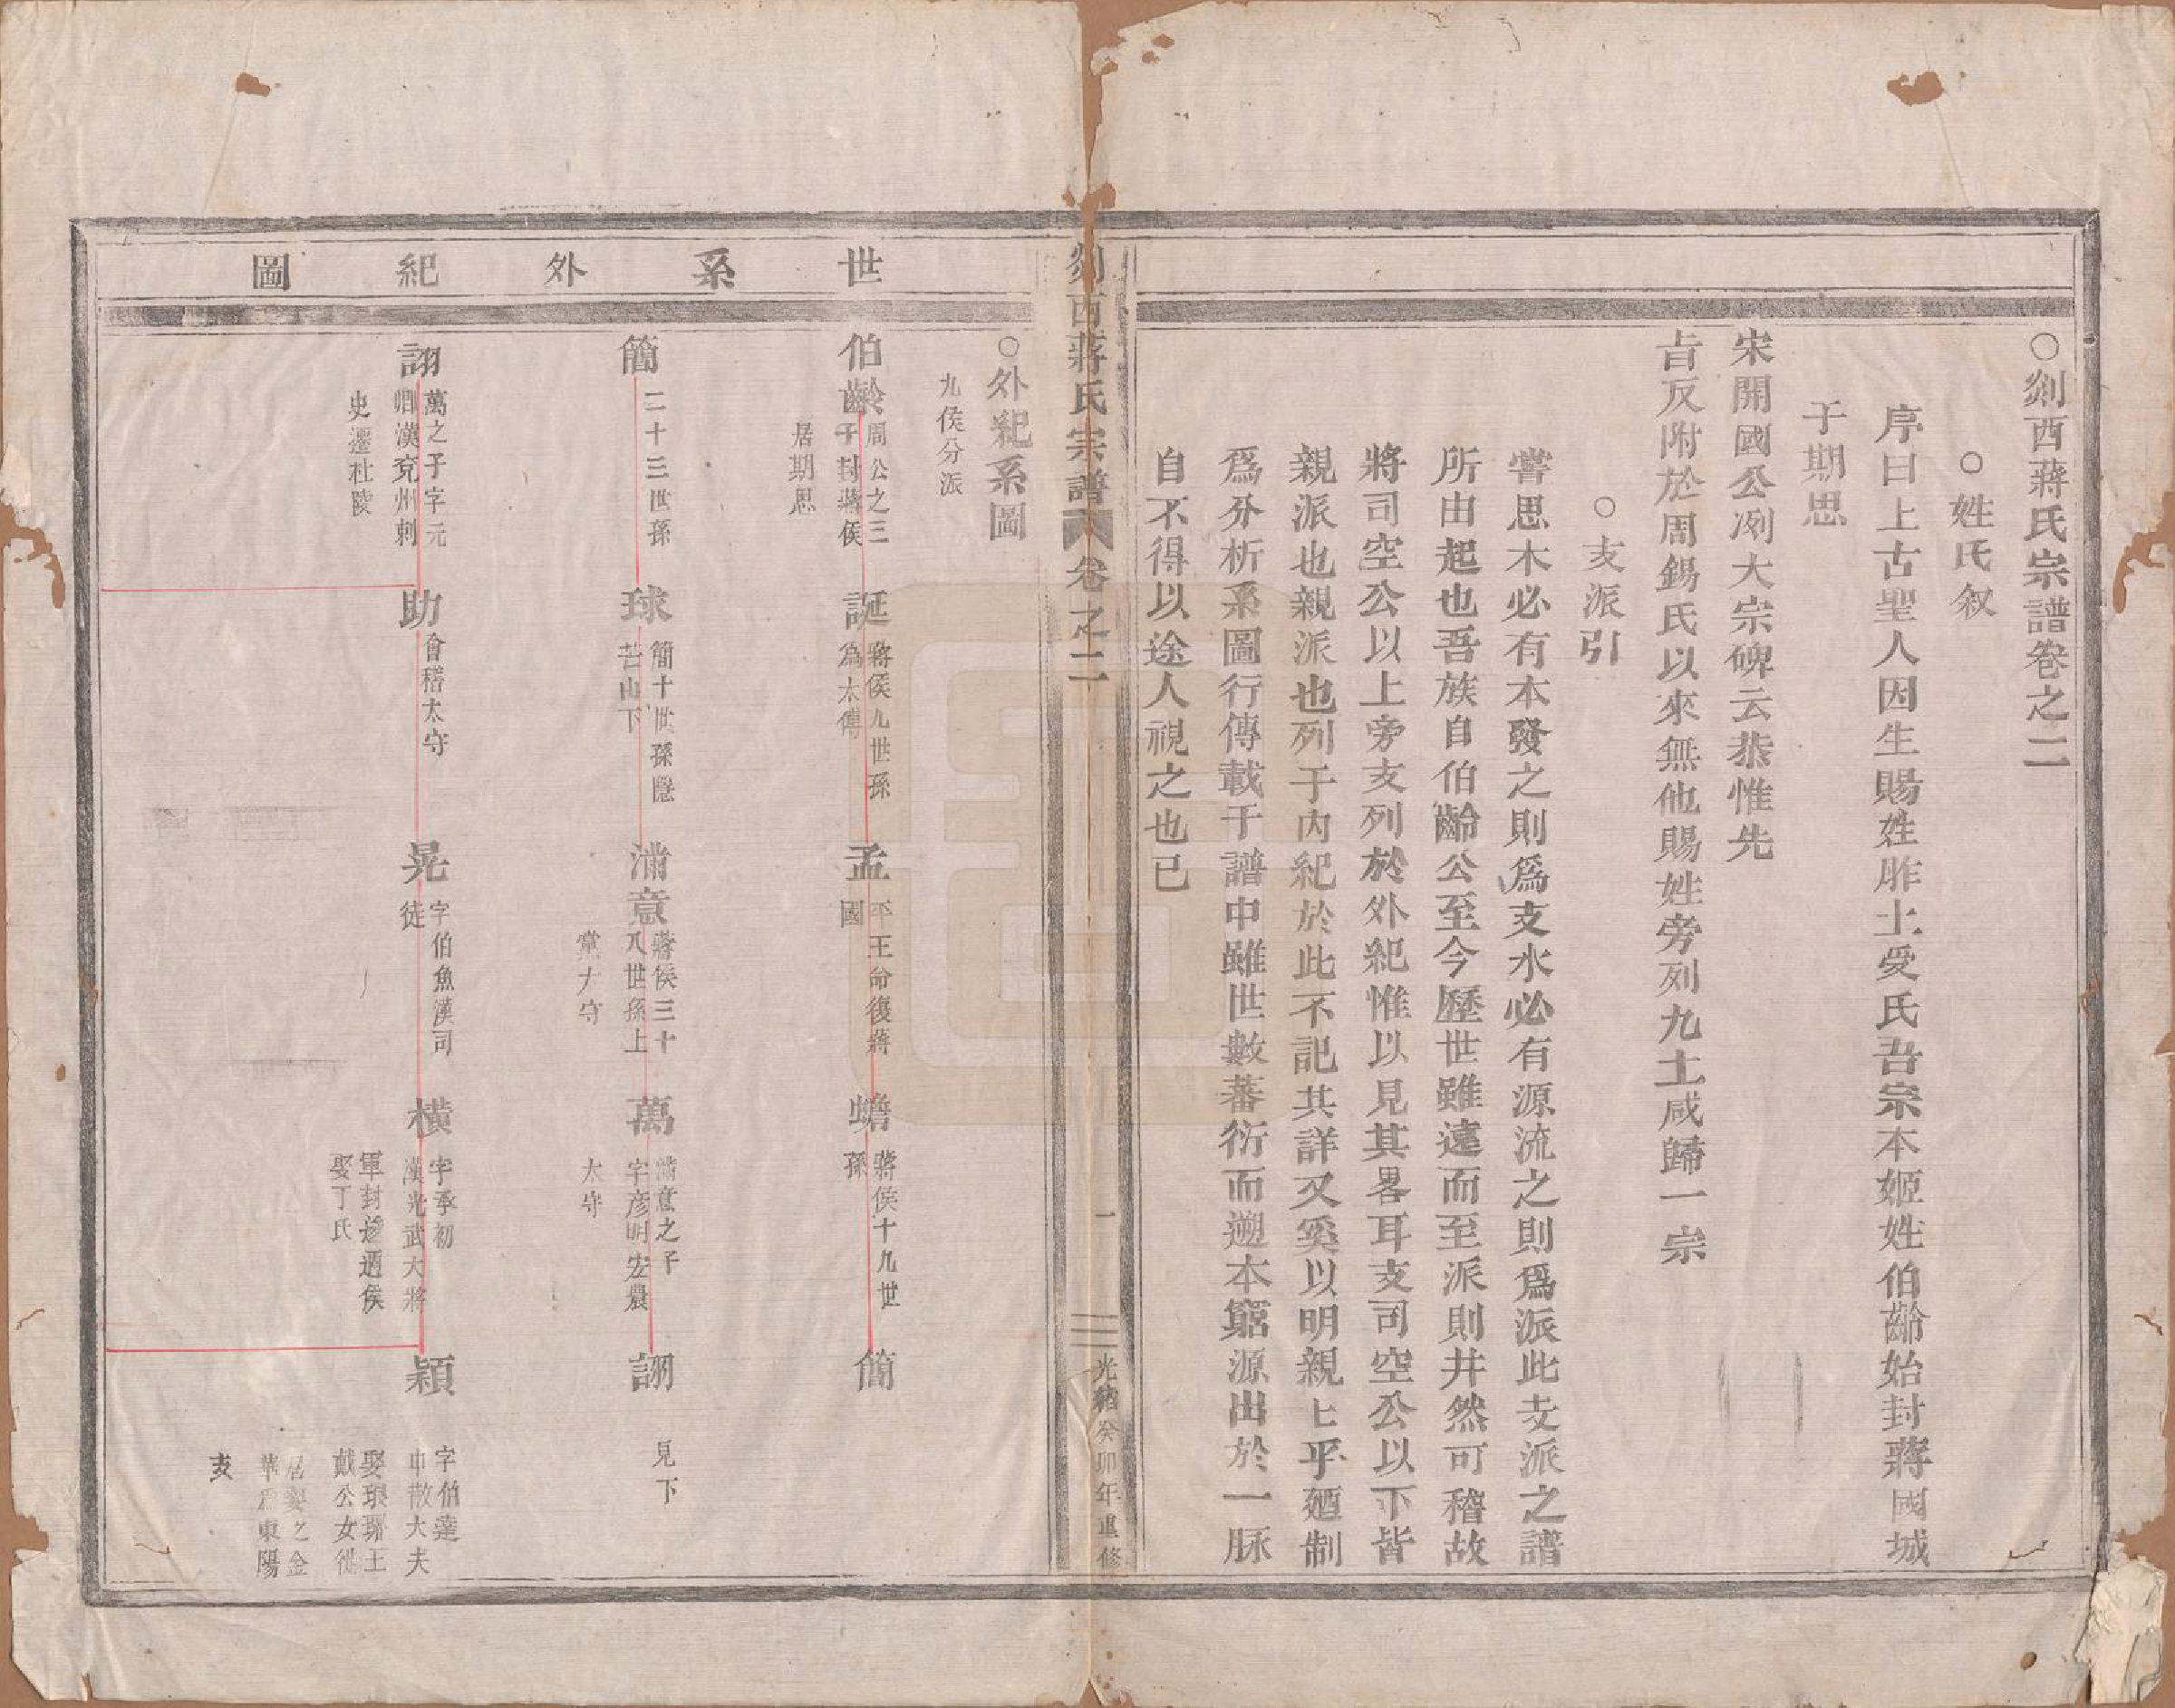 ○剡西蔣氏宗譜卷之二
○姓氏叙
序曰上古聖人因生賜姓胙土受氏吾宗本姬姓伯齡始封蔣國城
于期思
宋開國公冽大宗碑云恭惟先
㫖反附於周錫氏以來無他賜姓旁列九土咸歸一宗
○支派引
嘗思木必有本發之則爲支水必有源流之則爲派此支派之譜
所由起也吾族自伯齡公至今歷世雖遠而至派則井然可稽故
將司空公以上旁支列於外紀惟以見其畧耳支司空公以下皆
親派也親派也列于内紀於此不記其詳又奚以明親上乎廼制
爲分析系圖行傳載于譜中雖世數蕃衍而遡本窮源出於一脉
自不得以途人視之也已
剡西蔣氏宗譜 卷之二 一 光緒癸卯年重修
世系外紀圖
○外紀系圖
九侯分派
伯齡 周公之三
子封蔣侯
居期思
誕 蔣侯九世孫
為太傅
孟 平王命復蔣
國
蟾 蔣侯十九世
孫
簡
簡 二十三世孫
球 簡十世孫隱
苦山下
滿意 蔣侯三十
八世孫上
黨太守
萬 滿意之子
字彥明宏農
太守
詡 見下
詡 萬之子字元
卿漢兖州刺
史遷杜陵
助 會稽太守
晃 字伯魚漢司
徒
橫 字承初
漢光武大將
軍封逡遒侯
娶丁氏
穎 字伯蓬
中散大夫
娶琅琊王
戴公女徙
居婺之金
華爲東陽
支